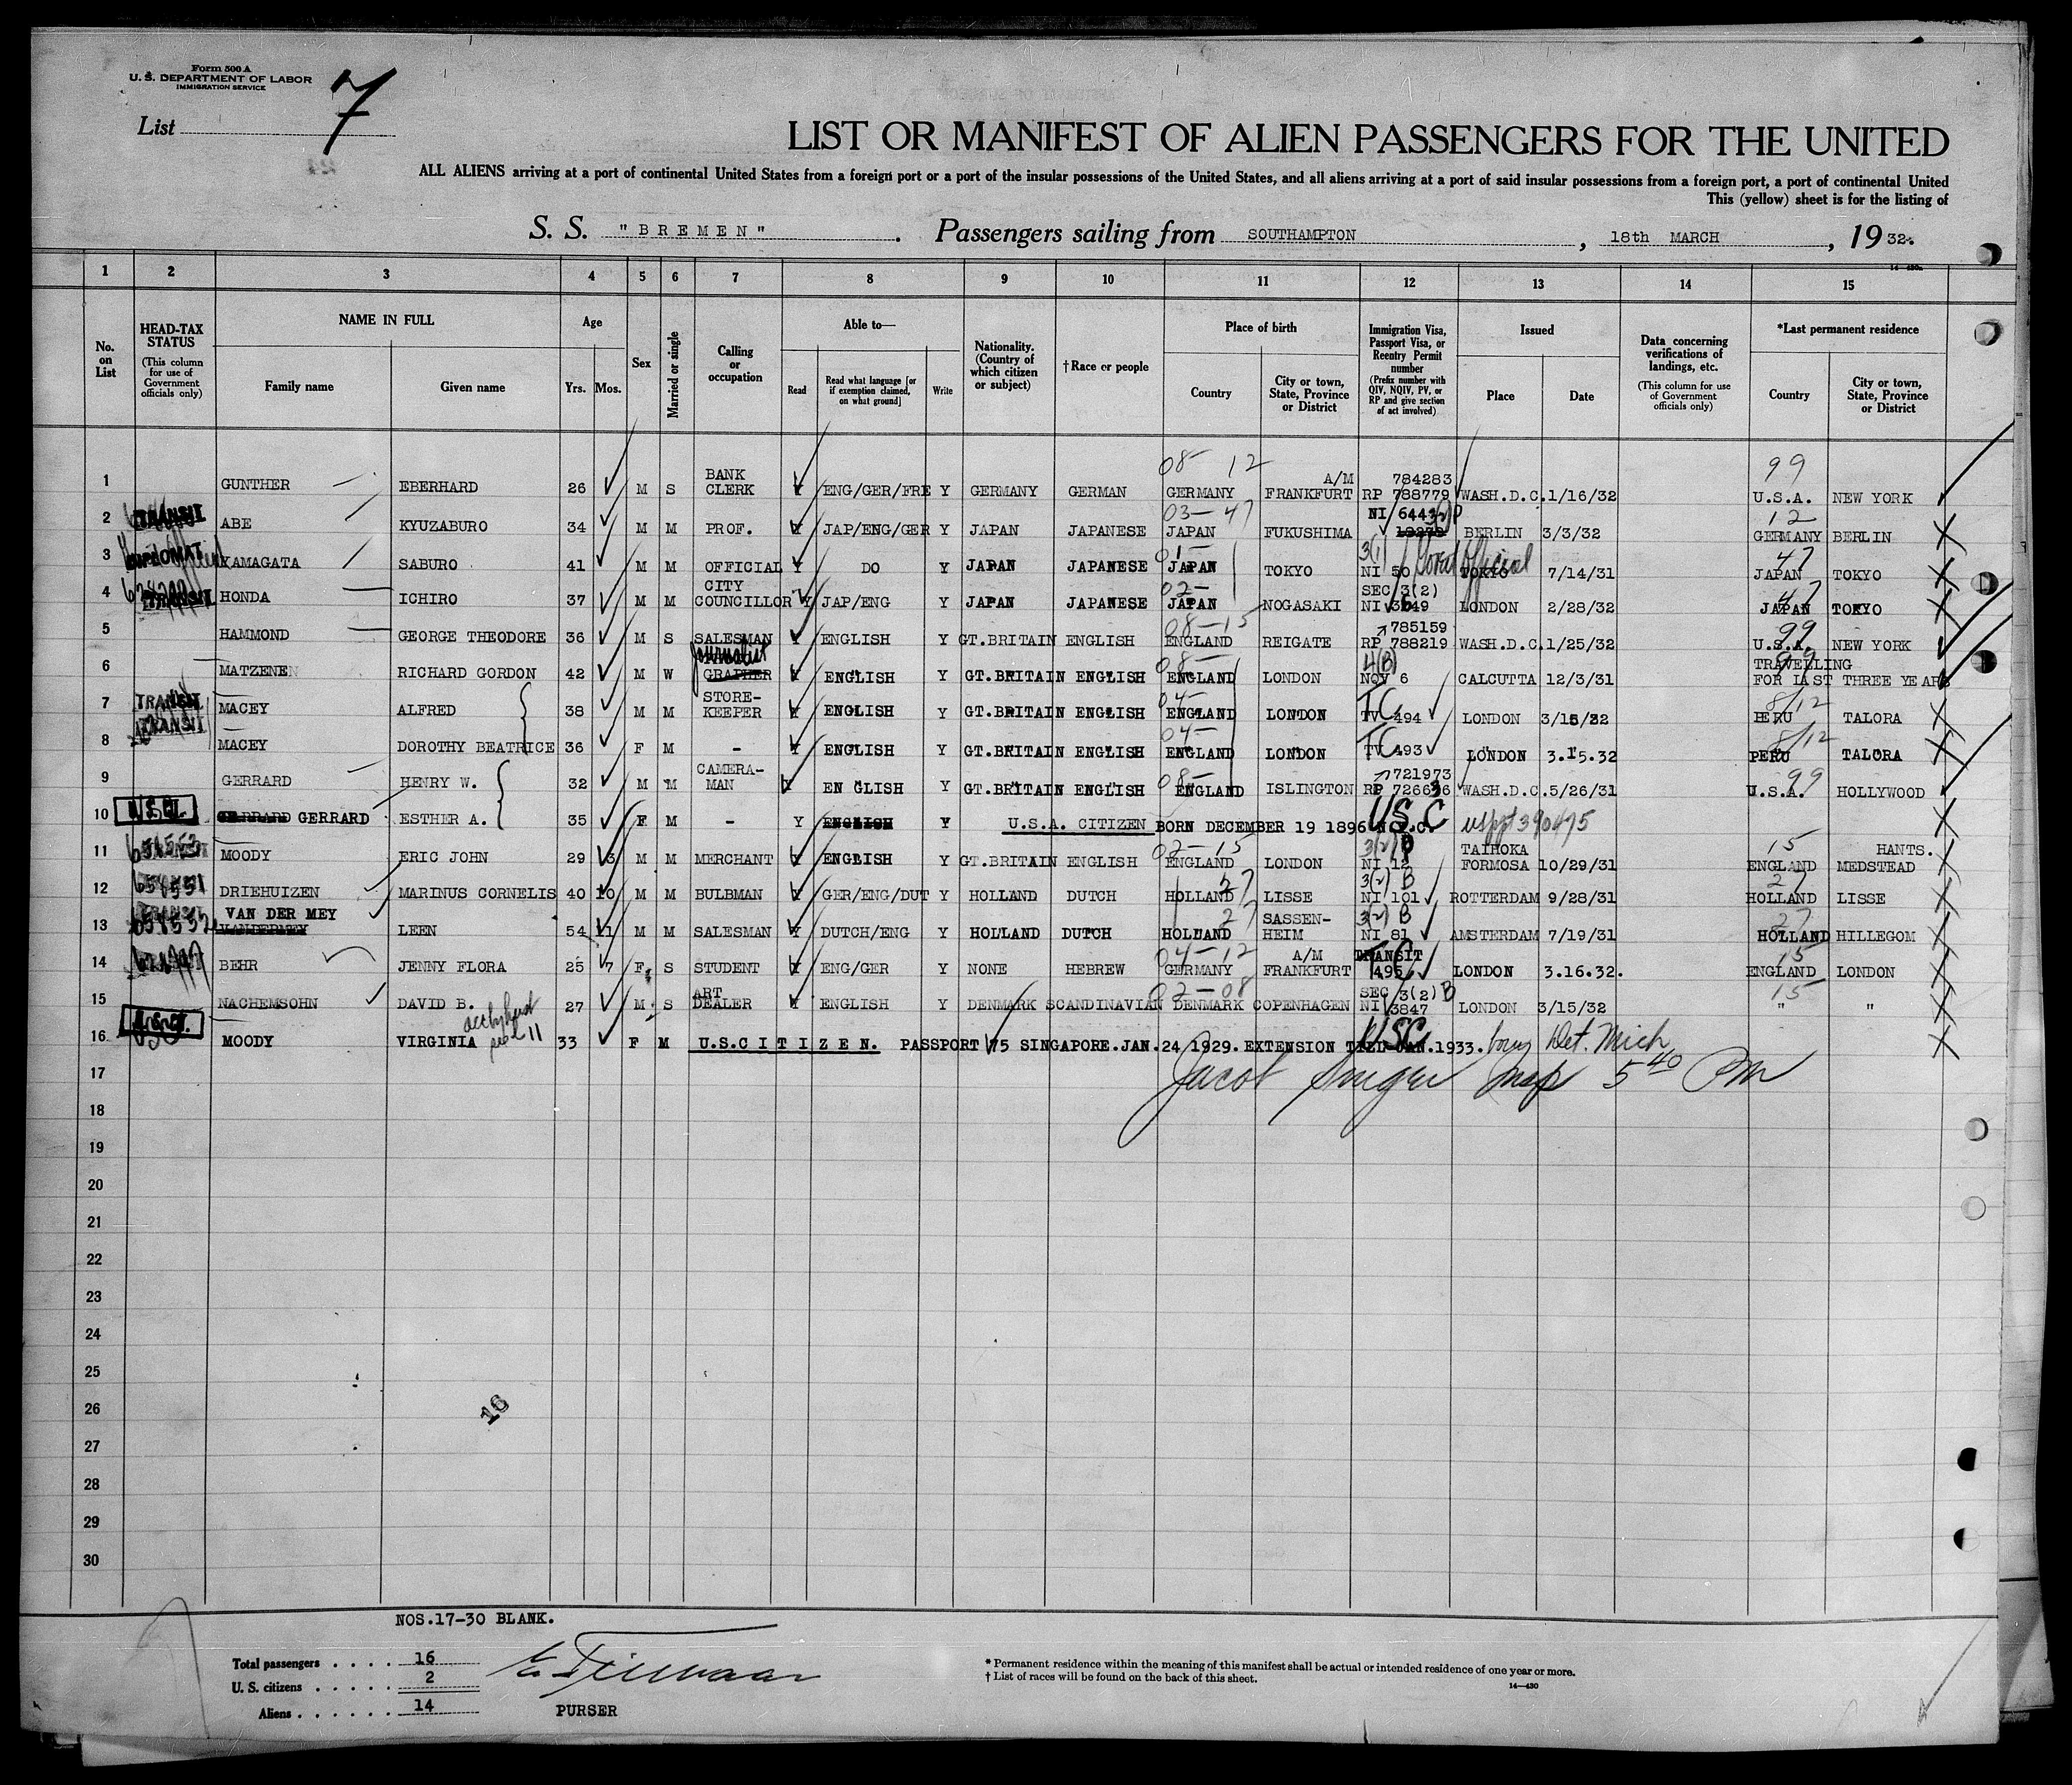 Form 500 A
U. S. DEPARTMENT OF LABOR
IMMIGRATION SERVICE
List 7
LIST OR MANIFEST OF ALIEN PASSENGERS FOR THE UNITED
ALL ALIENS arriving at a port of continental United States from a foreign port or a port of the insular possessions of the United States, and all aliens arriving at a port of said insular possessions from a foreign port, a port of continental United
This (yellow) sheet is for the listing of
S. S. "BREMEN". Passengers sailing from SOUTHAMPTON, 18th MARCH, 1932.
1 2 3 4 5 6 7 8 9 10 11 12 13 14 15
No. on List
HEAD-TAX STATUS (This column for use of Government officials only)
NAME IN FULL Family name Given name
Age Yrs. Mos.
Sex
Married or single
Calling or occupation
Able to— Read Read what language [or if exemption claimed, on what ground] Write
Nationality. (Country of which citizen or subject)
†Race or people
Place of birth Country City or town, State, Province or District
Immigration Visa, Passport Visa, or Reentry Permit number (Prefix number with QIV, NQIV, PV, or RP and give section of act involved)
Issued Place Date
Data concerning verifications of landings, etc. (This column for use of Government officials only)
*Last permanent residence Country City or town, State, Province or District
1 GUNTHER EBERHARD 26 M S BANK CLERK Y ENG/GER/FRE Y GERMANY GERMAN 08-12 GERMANY A/M FRANKFURT 784283 RP 788779 WASH.D.C. 1/16/32 99 U.S.A. NEW YORK
2 TRANSIT ABE KYUZABURO 34 M M PROF. Y JAP/ENG/GER Y JAPAN JAPANESE 03-47 JAPAN FUKUSHIMA NI BERLIN 3/3/32 12 GERMANY BERLIN
3 DIPLOMAT YAMAGATA SABURO 41 M M OFFICIAL Y DO Y JAPAN JAPANESE 01- JAPAN TOKYO 3(1) NI 50 Govt Official TOKYO 7/14/31 47 JAPAN TOKYO
4 TRANSIT HONDA ICHIRO 37 M M CITY COUNCILLOR Y JAP/ENG Y JAPAN JAPANESE 02- JAPAN NOGASAKI SEC 3(2) NI LONDON 2/28/32 47 JAPAN TOKYO
5 HAMMOND GEORGE THEODORE 36 M S SALESMAN Y ENGLISH Y GT.BRITAIN ENGLISH 08-15 ENGLAND REIGATE 785159 RP 788219 WASH.D.C. 1/25/32 99 U.S.A. NEW YORK
6 MATZENEN RICHARD GORDON 42 M W Journalist GRAPHER Y ENGLISH Y GT.BRITAIN ENGLISH 08- ENGLAND LONDON 4(B) NQV 6 CALCUTTA 12/3/31 99 TRAVELLING FOR LAST THREE YEARS
7 TRANSIT MACEY ALFRED 38 M M STORE-KEEPER Y ENGLISH Y GT.BRITAIN ENGLISH 04- ENGLAND LONDON TC TV 494 LONDON 3/15/32 8/12 PERU TALORA
8 TRANSIT MACEY DOROTHY BEATRICE 36 F M - Y ENGLISH Y GT.BRITAIN ENGLISH 04- ENGLAND LONDON TC TV 493 LONDON 3.15.32 8/12 PERU TALORA
9 GERRARD HENRY W. 32 M M CAMERA-MAN Y EN GLISH Y GT.BRITAIN ENGLISH 08- ENGLAND ISLINGTON 721973 RP WASH.D.C. 5/26/31 99 U.S.A. HOLLYWOOD
10 GERRARD ESTHER A. 35 F M - Y ENGLISH Y U.S.A. CITIZEN BORN DECEMBER 19 1896 N.Y.C. USC usppt 390475
11 MOODY ERIC JOHN 29 3 M M MERCHANT Y ENGLISH Y GT.BRITAIN ENGLISH 02-15 ENGLAND LONDON 3(2) B NI 12 TAIHOKA FORMOSA 10/29/31 15 ENGLAND HANTS. MEDSTEAD
12 DRIEHUIZEN MARINUS CORNELIS 40 10 M M BULBMAN Y GER/ENG/DUT Y HOLLAND DUTCH HOLLAND 27 LISSE 3(2) B NI 101 ROTTERDAM 9/28/31 27 HOLLAND LISSE
13 VAN DER MEY LEEN 54 11 M M SALESMAN Y DUTCH/ENG Y HOLLAND DUTCH 27 HOLLAND SASSEN-HEIM 3(2) B NI 81 AMSTERDAM 7/19/31 27 HOLLAND HILLEGOM
14 BEHR JENNY FLORA 25 7 F S STUDENT Y ENG/GER Y NONE HEBREW 04-12 GERMANY A/M FRANKFURT TC TRANSIT 495 LONDON 3.16.32. 15 ENGLAND LONDON
15 NACHEMSOHN DAVID B. 27 M S ART DEALER Y ENGLISH Y DENMARK SCANDINAVIAN 02-08 DENMARK COPENHAGEN SEC 3(2) B NI 3847 LONDON 3/15/32 15 " "
16 MOODY VIRGINIA 33 F M U.S.CITIZEN. PASSPORT 75 SINGAPORE.JAN.24 1929. EXTENSION TILL JAN.1933. USC born Det. Mich
17 Jacob Insp 5 40 PM
18
19
20
21
22
23
24
25
26
16
27
28
29
30
NOS.17-30 BLANK.
Total passengers . . . . 16
U. S. citizens . . . . . 2
Aliens . . . . . . 14
PURSER
* Permanent residence within the meaning of this manifest shall be actual or intended residence of one year or more.
† List of races will be found on the back of this sheet.
14—430